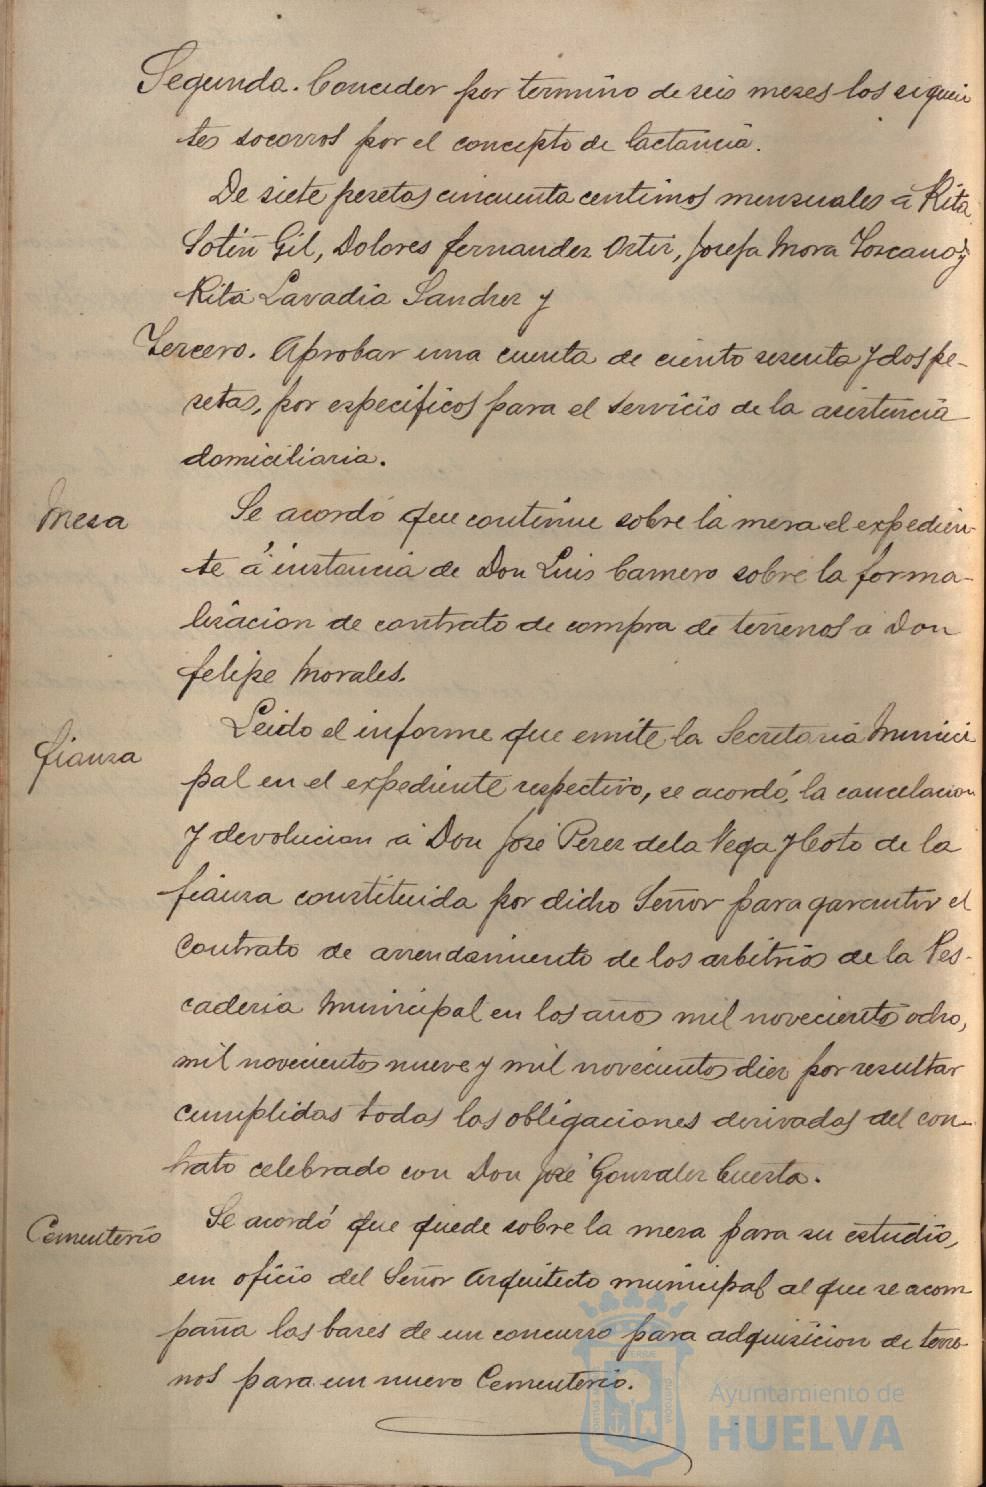 Segunda. Conceder por termino de seis meses los siguien
tes socorros por el concepto de lactancia.
De siete pesetas cincuenta centimos mensuales á Rita
Sotin Gil, Dolores Fernandez Ortiz, Josefa Mora Toscano y
Rita Lavadia Sanchez y
Tercero. Aprobar una cuenta de ciento sesenta y dos pe-
setas, por especificos para el servicio de la asistencia
domiciliaria.
Mesa
Se acordó que continue sobre la mesa el expedien-
te á instancia de Don Luis Carnero sobre la forma-
lizacion de contrato de compra de terrenos a Don
Felipe Morales.
Fianza
Leido el informe que emite la Secretaria Munici
pal en el expediente respectivo, se acordó, la cancelacion
y devolucion á Don José Perez de la Vega y Coto de la
fianza constituida por dicho Señor para garantir el
contrato de arrendamiento de los arbitrios de la Pes-
caderia Municipal en los años mil novecientos ocho,
mil novecientos nueve y mil novecientos diez por resultar
cumplidas todas las obligaciones derivadas del con-
trato celebrado con Don José Gonzalez Cuesta.
Cementerio
Se acordó que quede sobre la mesa para su estudio,
un oficio del Señor Arquitecto municipal al que se acom
paña las bases de un concurso para adquisicion de terre-
nos para un nuevo Cementerio.
Ayuntamiento de
HUELVA